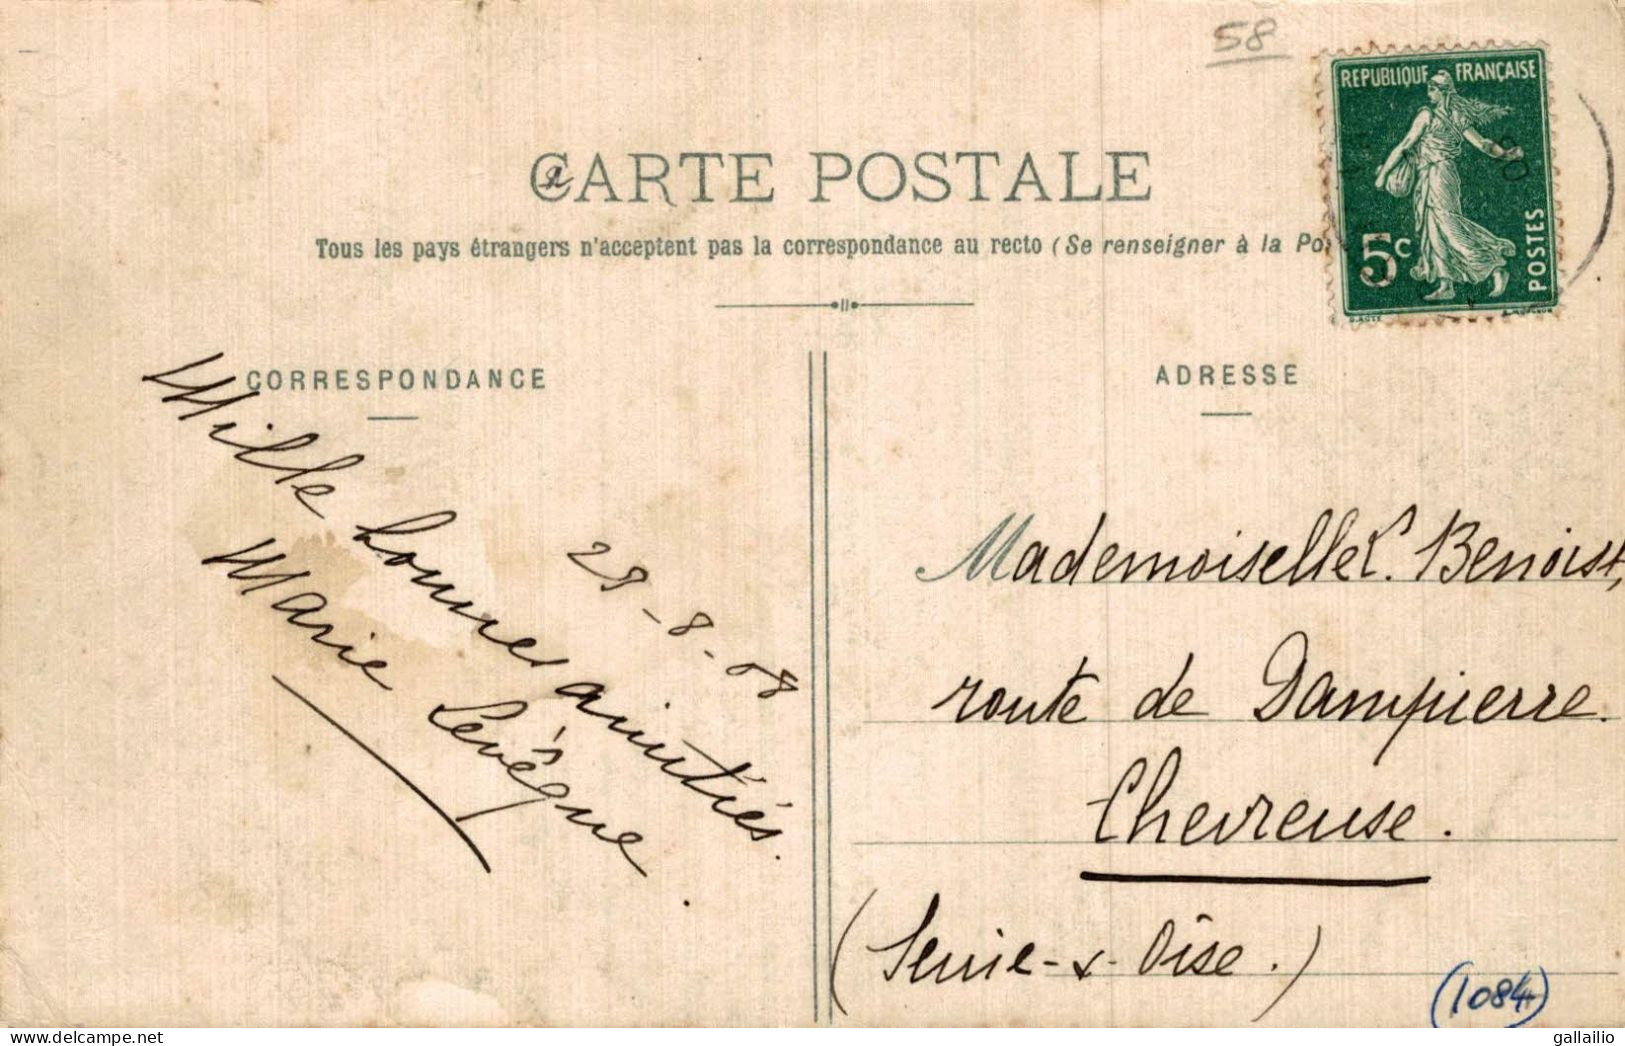 58
REPUBLIQUE FRANÇAISE
5c
POSTES
CARTE POSTALE
Tous les pays étrangers n'acceptent pas la correspondance au recto (Se renseigner à la Po
CORRESPONDANCE
Mille bonnes amitiés.
Marie Levêque.
28-8-08
ADRESSE
Mademoiselle L. Benoist,
route de Dampierre.
Chevreuse.
(Seine-&-Oise.)
(1084)
gallailio